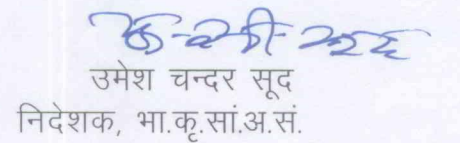 उमेश चन्दर सूद
निदेशक, भा.कृ.सां.अ.सं.